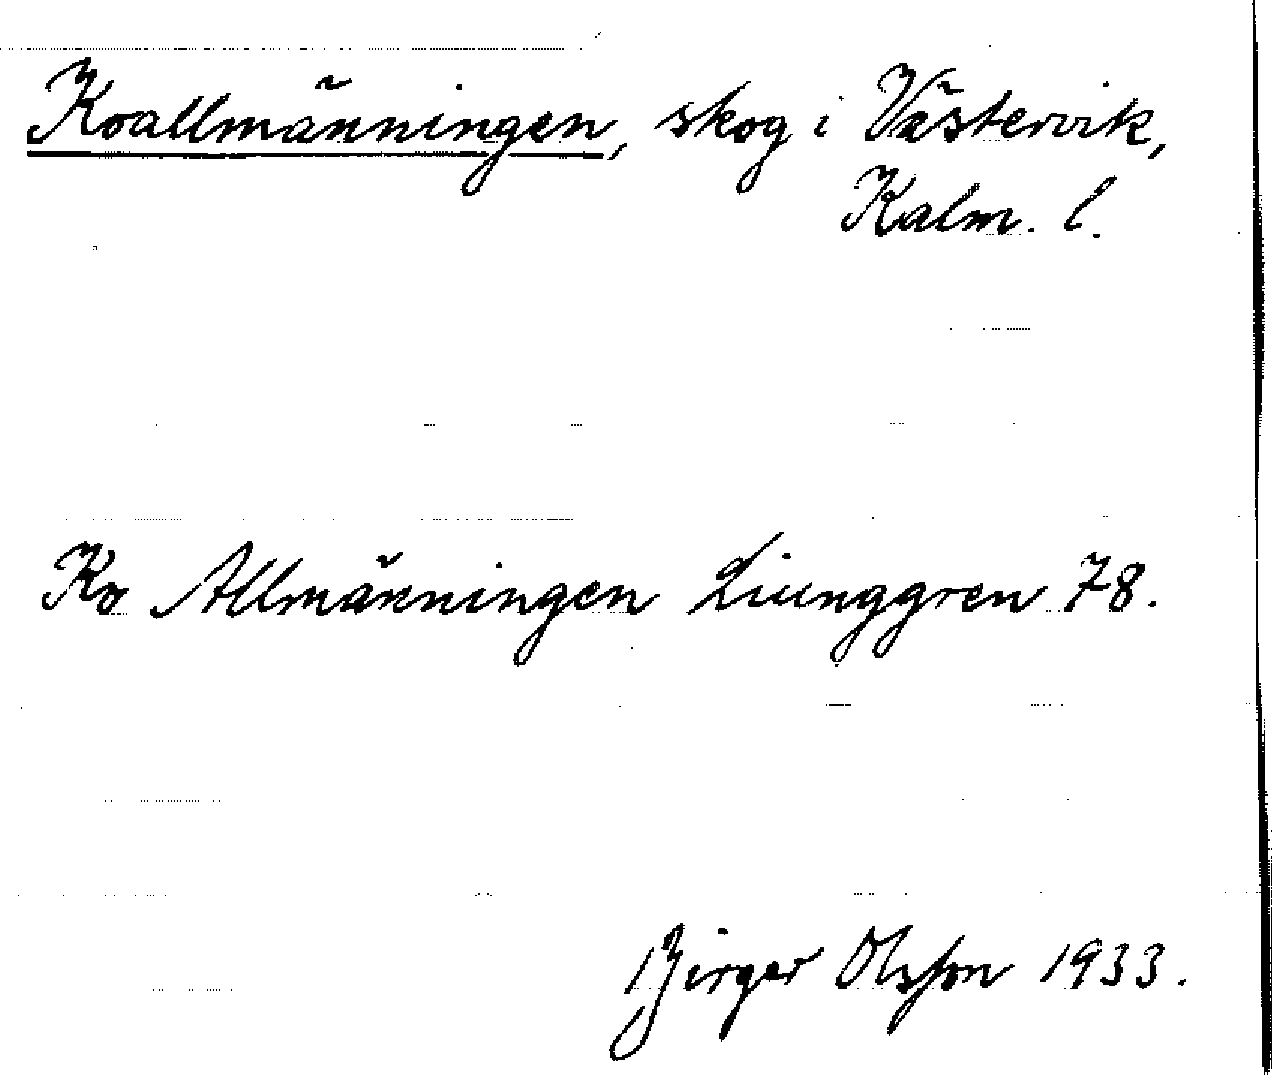 Koallmänningen, skog i Västervik,
Kalm. l.
Ko Allmänningen Liunggren 78.
Birger Olsson 1933.